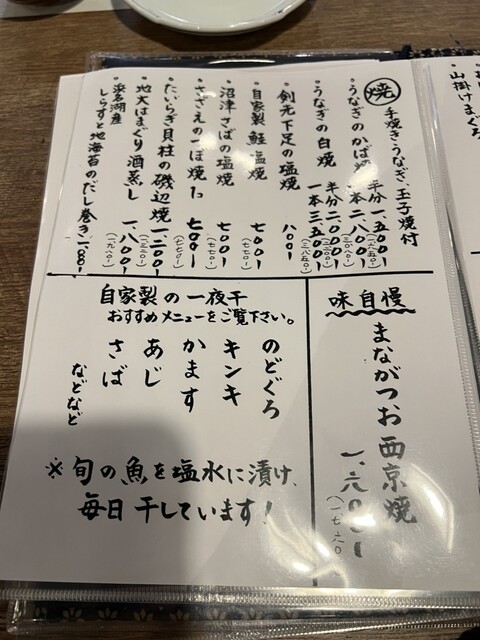 焼 手焼き・うなぎ、玉子焼付
・うなぎのかば焼 半分 一、五〇〇 (一六五〇)
一本 二、八〇〇 (三〇八〇)
・うなぎの白焼 半分 二、〇〇〇
一本 三、五〇〇 (三八五〇)
・剣先下足の塩焼 八〇〇
・自家製 鮭塩焼 七〇〇 (七七〇)
・沼津さばの塩焼 七〇〇 (七七〇)
・さざえのつぼ焼 七〇〇 (七七〇)
・たいらぎ貝柱の磯辺焼 一、二〇〇 (一三二〇)
・地大はまぐり酒蒸し 一、八〇〇 (一九八〇)
・浜名湖産
しらすと地海苔のだし巻き
山掛けまぐろ
味自慢
まながつお西京焼
一、六〇〇 (一七六〇)
自家製の一夜干
おすすめメニューをご覧下さい。
のどぐろ
キンキ
かます
あじ
さば
などなど
※旬の魚を塩水に漬け、
毎日干しています!